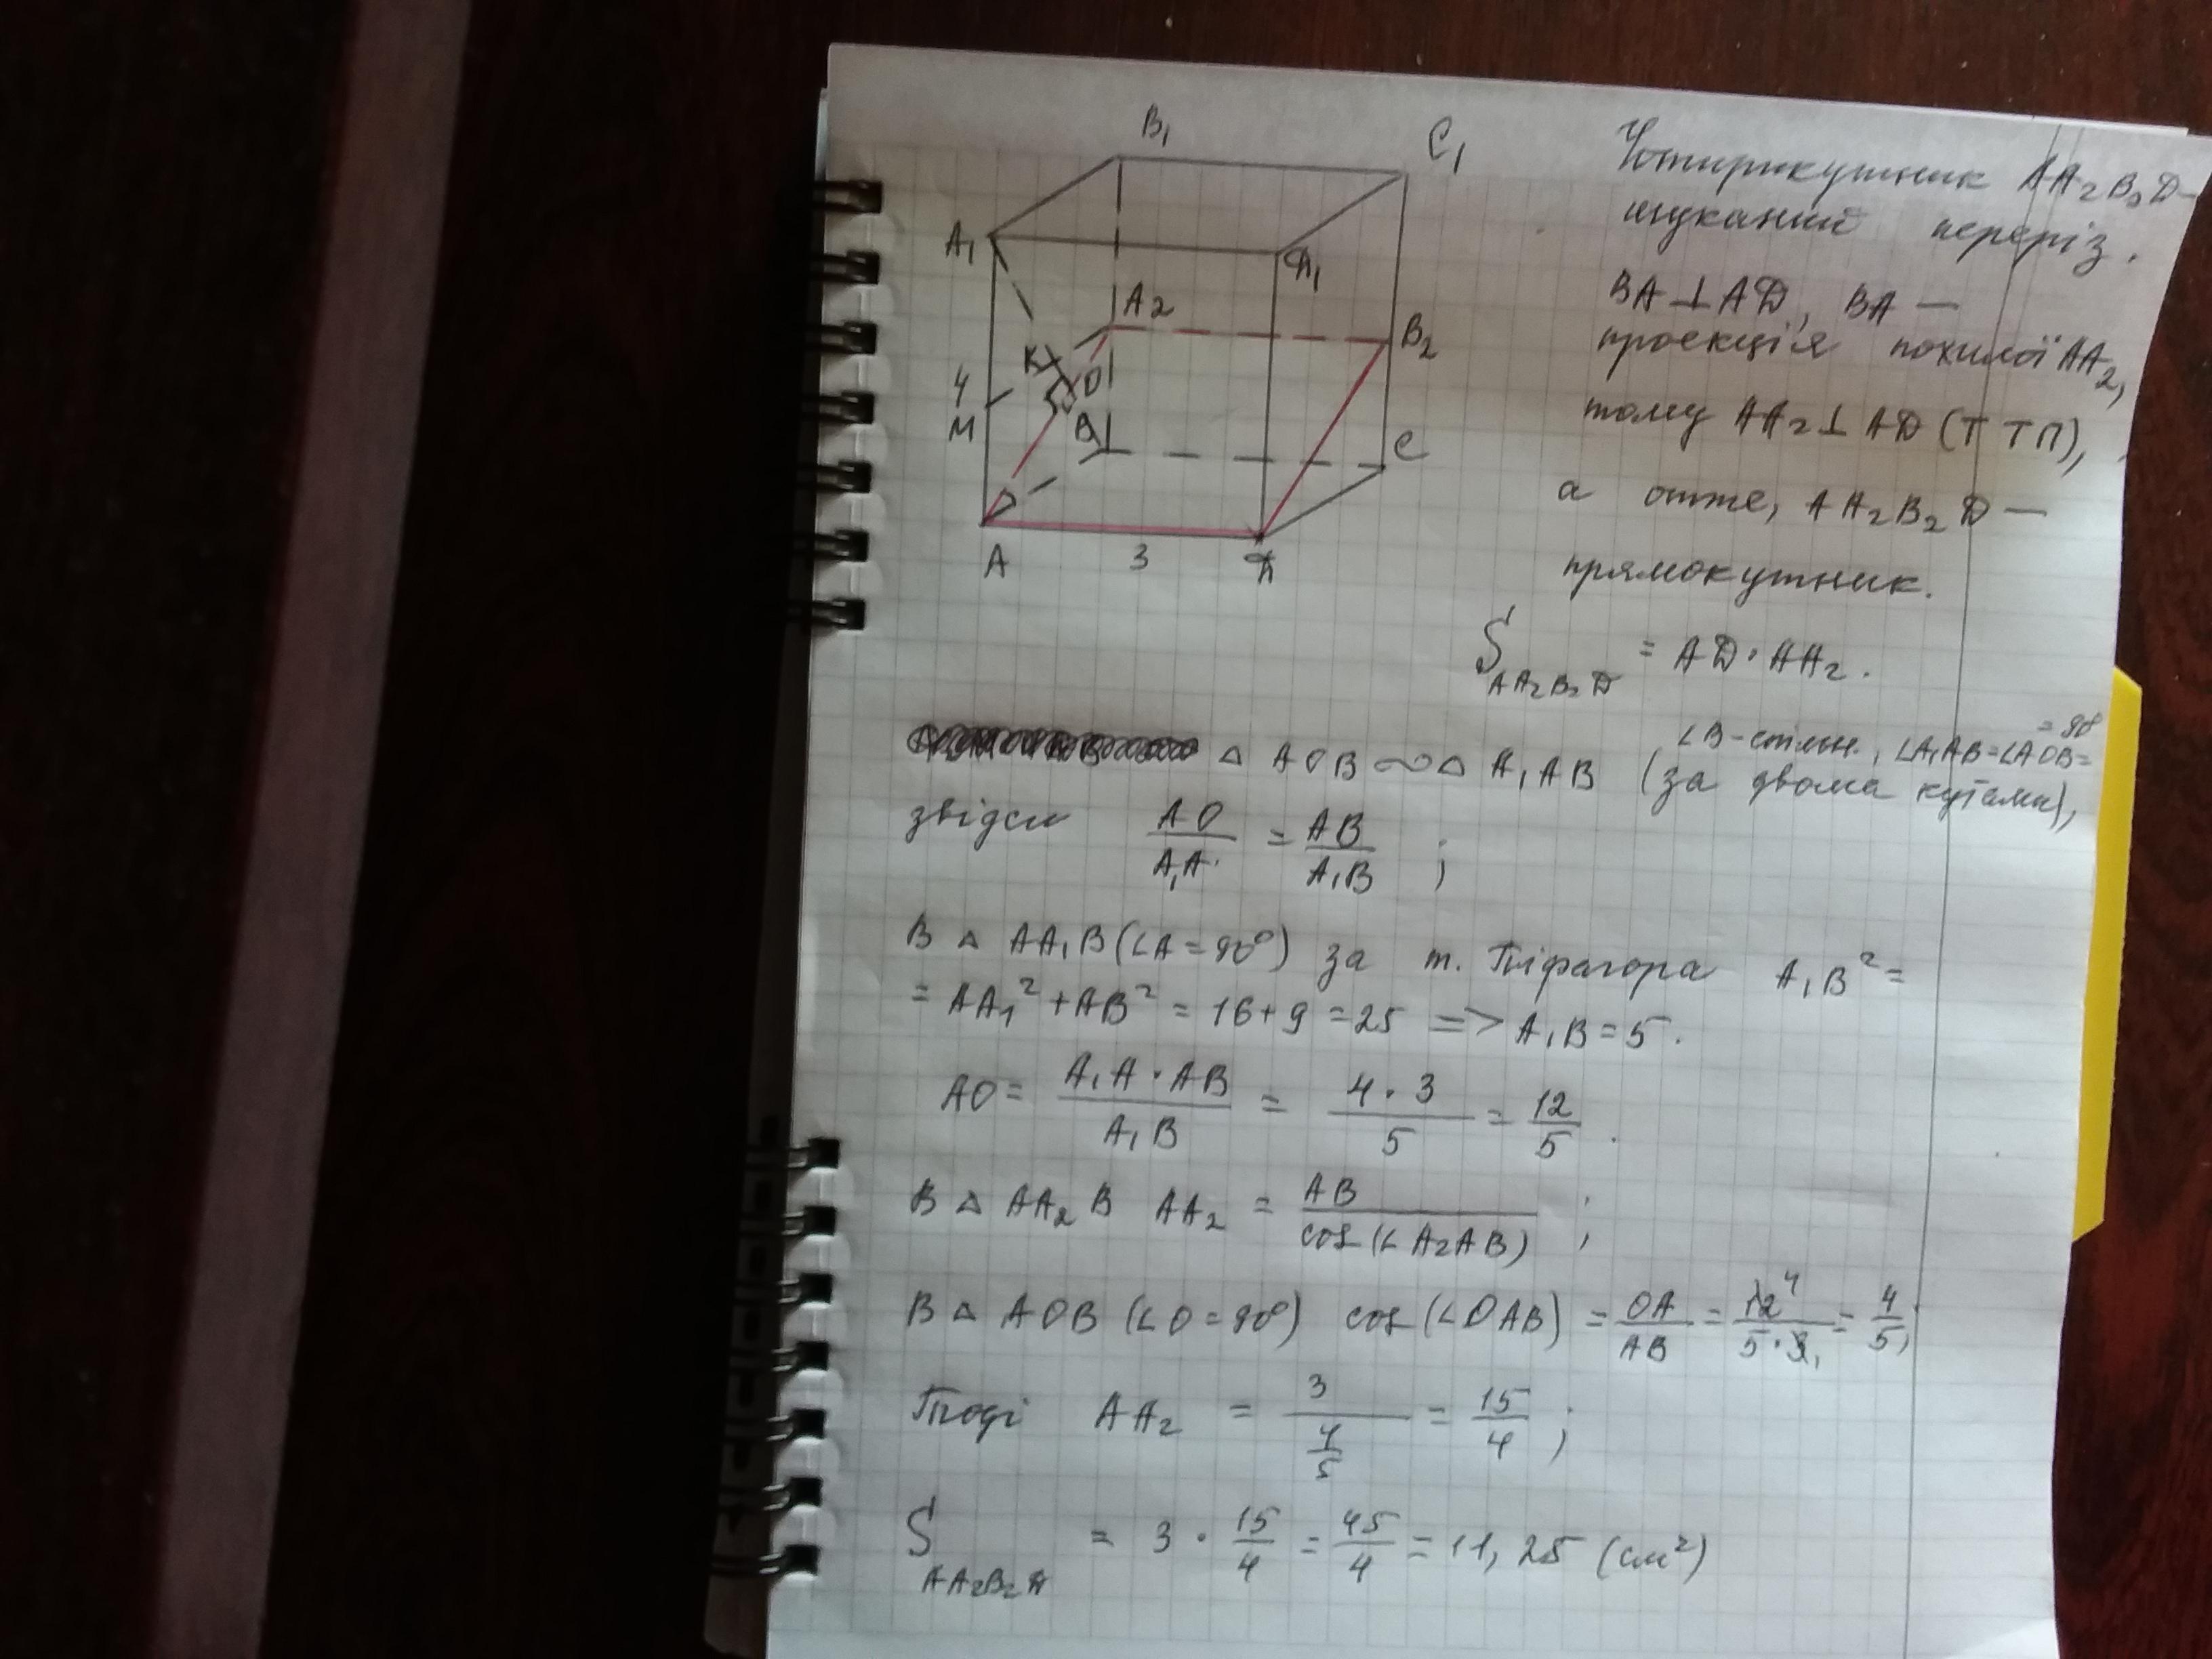 B₁
C₁
A₁
Д₁
A₂
B₂
K
O
4
M
B
C
A
3
Д
Чотирикутник AA₂B₂Д –
шуканий переріз.
BA ⊥ AД, BA —
проекція похилої AA₂,
тому AA₂ ⊥ AД (Т ТП),
а отже, AA₂B₂Д —
прямокутник.
S AA₂B₂Д = AД · AA₂.
∠B – спільн., ∠A₁AB = ∠AOB = = 90°
△ AOB ∾ △ A₁AB (за двома кутами),
звідси AO/A₁A = AB/A₁B ;
В △ AA₁B (∠A = 90°) за т. Піфагора A₁B² =
= AA₁² + AB² = 16 + 9 = 25 => A₁B = 5.
AO = A₁A · AB/A₁B = 4 · 3/5 = 12/5 .
В △ AA₂B AA₂ = AB/cos(∠A₂AB) ;
В △ AOB (∠O = 90°) cos(∠OAB) = OA/AB = 12⁴/5 · 3₁ = 4/5;
Тоді AA₂ = 3/(4/5) = 15/4 ;
S AA₂B₂Д = 3 · 15/4 = 45/4 = 11,25 (см²)